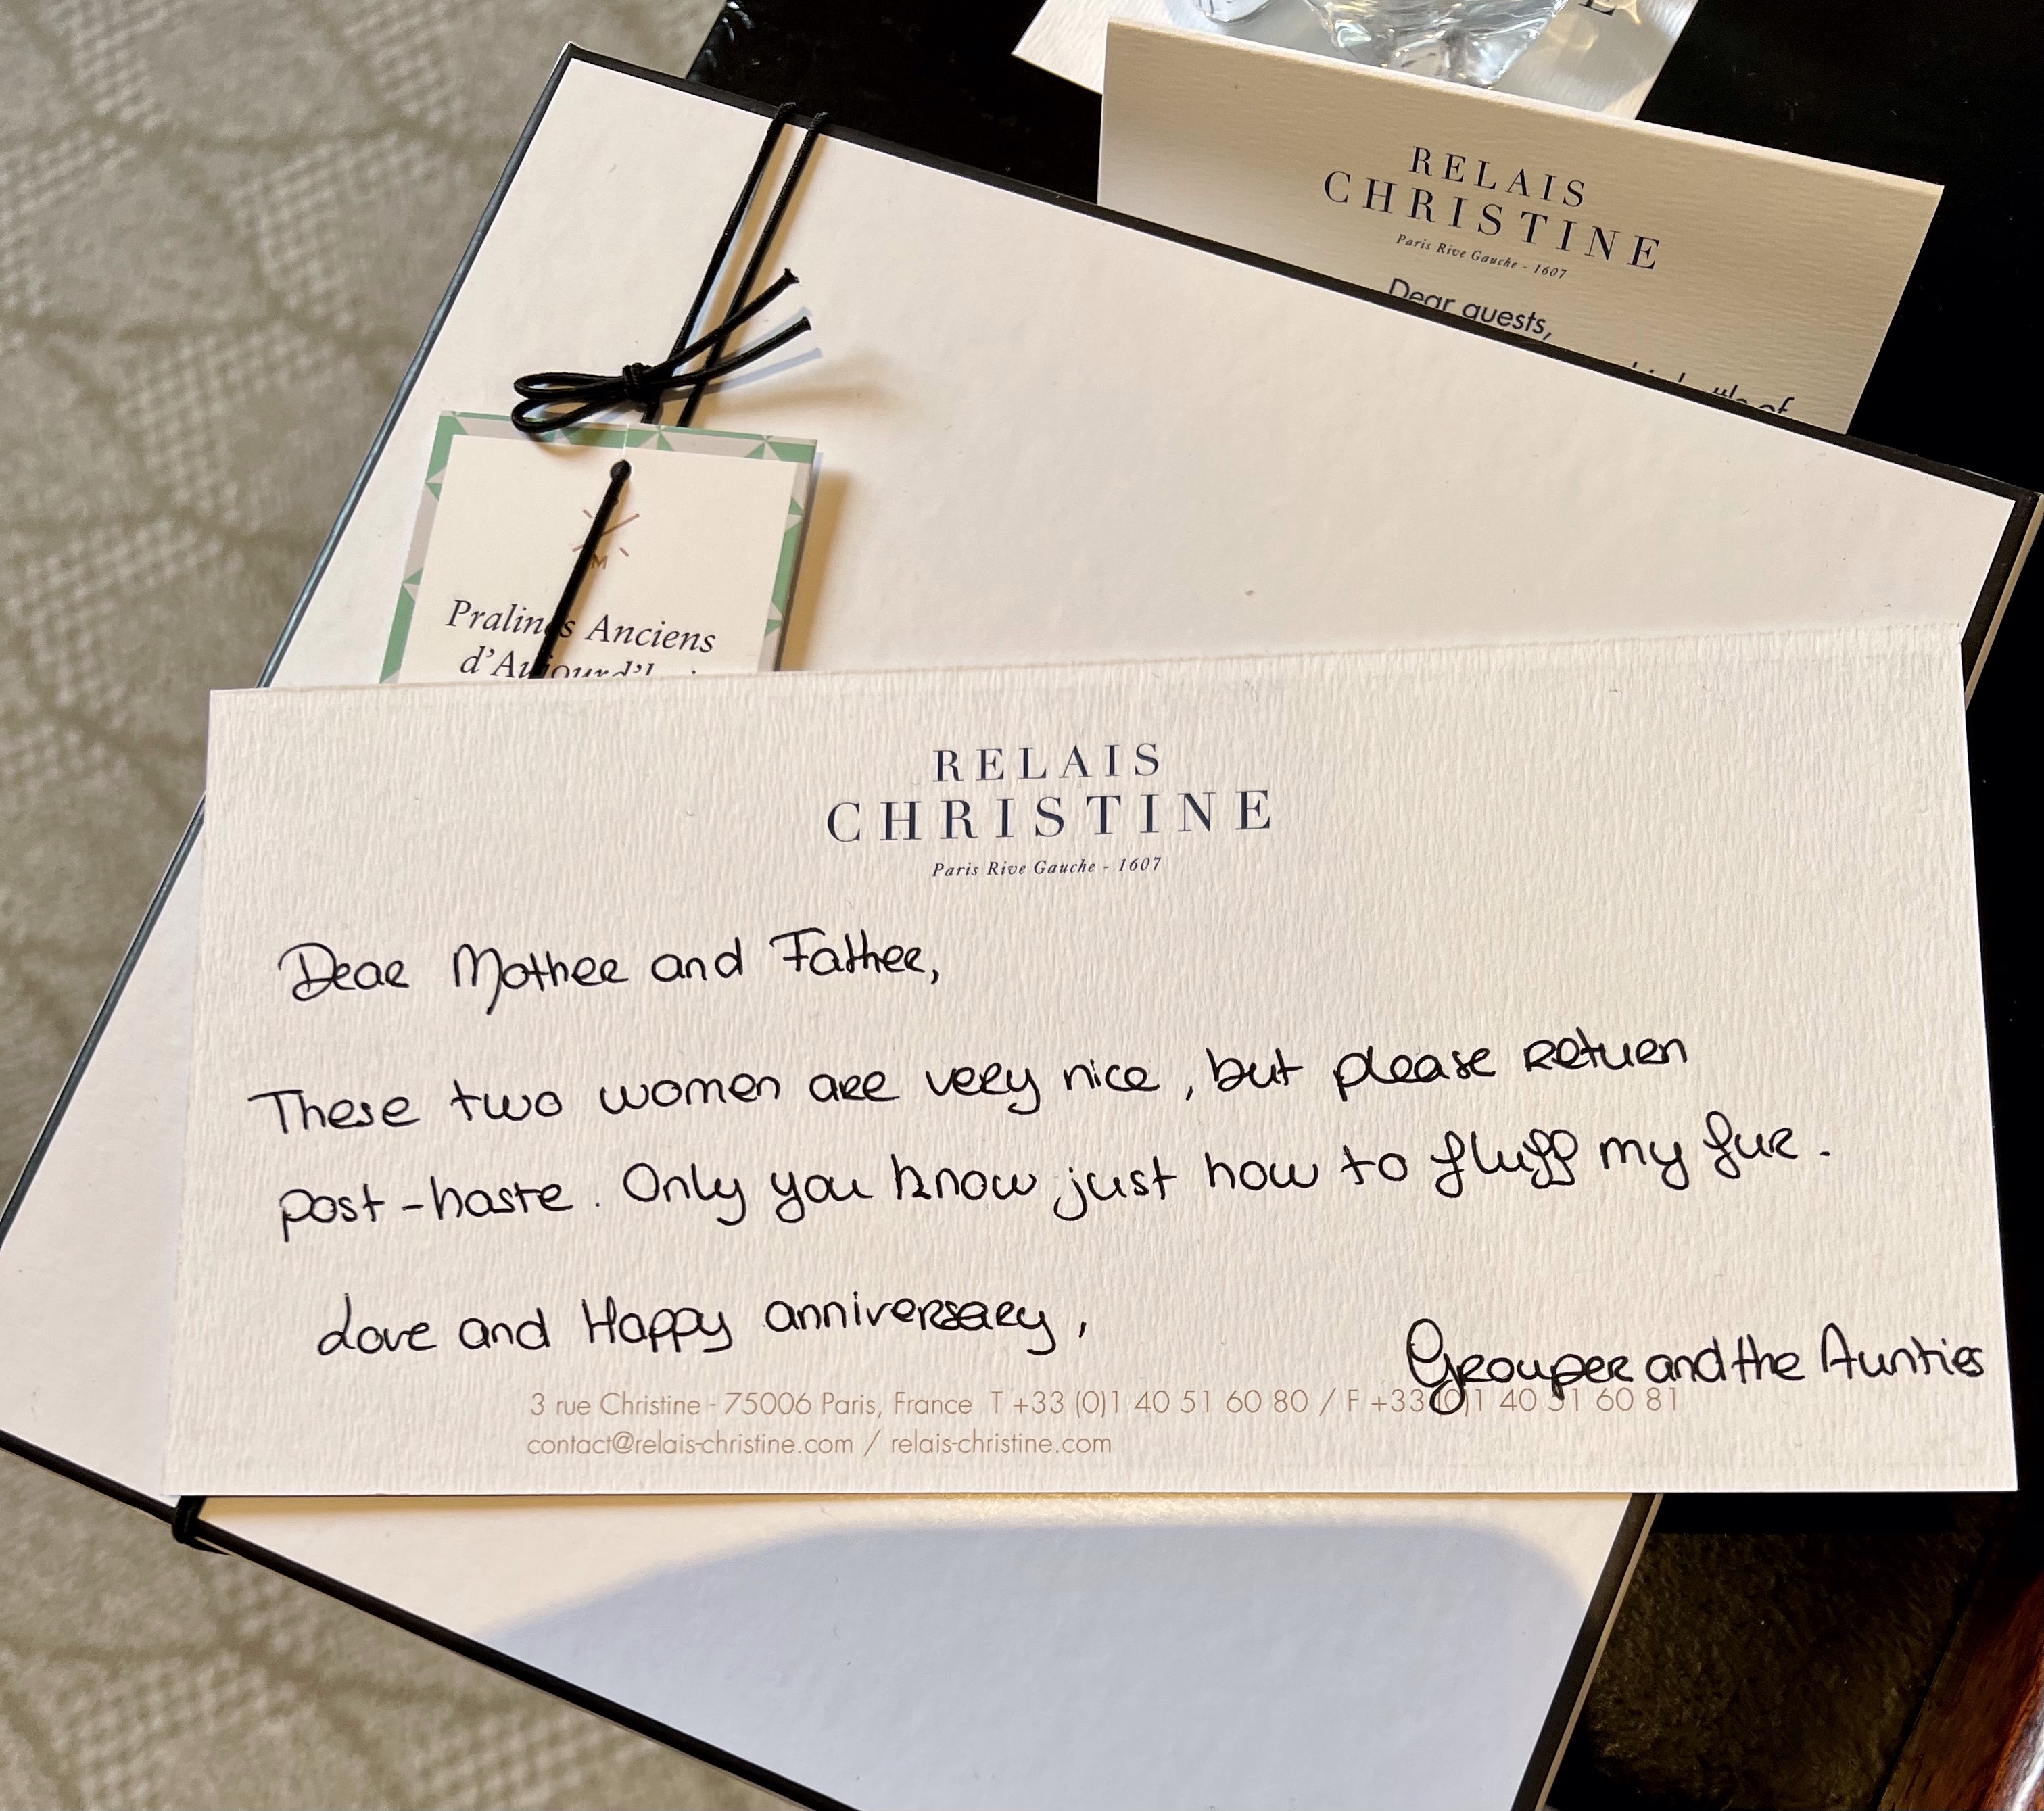 RELAIS
CHRISTINE
Paris Rive Gauche - 1607
Dear guests,
of
M
Pralines Anciens
d'Aujourd'hui
RELAIS
CHRISTINE
Paris Rive Gauche - 1607
Dear Mother and Father,
These two women are very nice, but please return
post-haste. Only you know just how to fluff my fur.
Love and Happy anniversary,
Grouper and the Aunties
3 rue Christine - 75006 Paris, France T +33 (0)1 40 51 60 80 / F +33 (0)1 40 51 60 81
contact@relais-christine.com / relais-christine.com